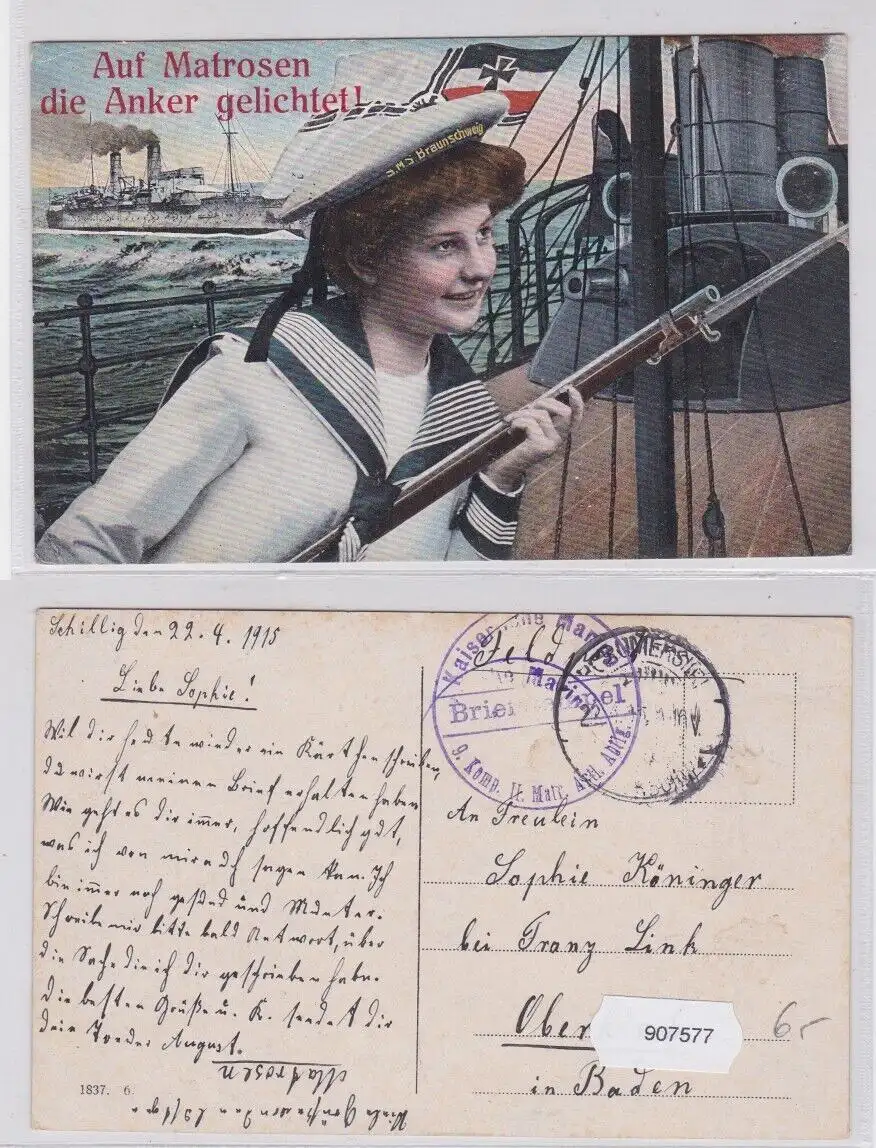 Auf Matrosen
die Anker gelichtet!
S.M.S Braunschweig
Schillig den 22.4.1915
Liebe Sophie!
Wil dir heute wieder ein Kärtchen schreiben,
du wirst meinen Brief erhalten haben
Wie geht es dir immer, hoffendlich gut,
was ich von mir auch sagen kan. Ich
bin immer noch gesund und Munter.
Schreibe mir bitte bald Antwort, über
die Sache die ich dir geschrieben habe.
Die besten Grüße u. K. sendet dir
dein August.
Matrosen
Viele Grüße von
1837. 6.
Feld
Kaiserliche Marine
Marine
Brief
9. Komp. II. Matr. Art. Abtlg.
An Freulein
Sophie Köninger
bei Franz Link
Ober
907577
6.-
in Baden